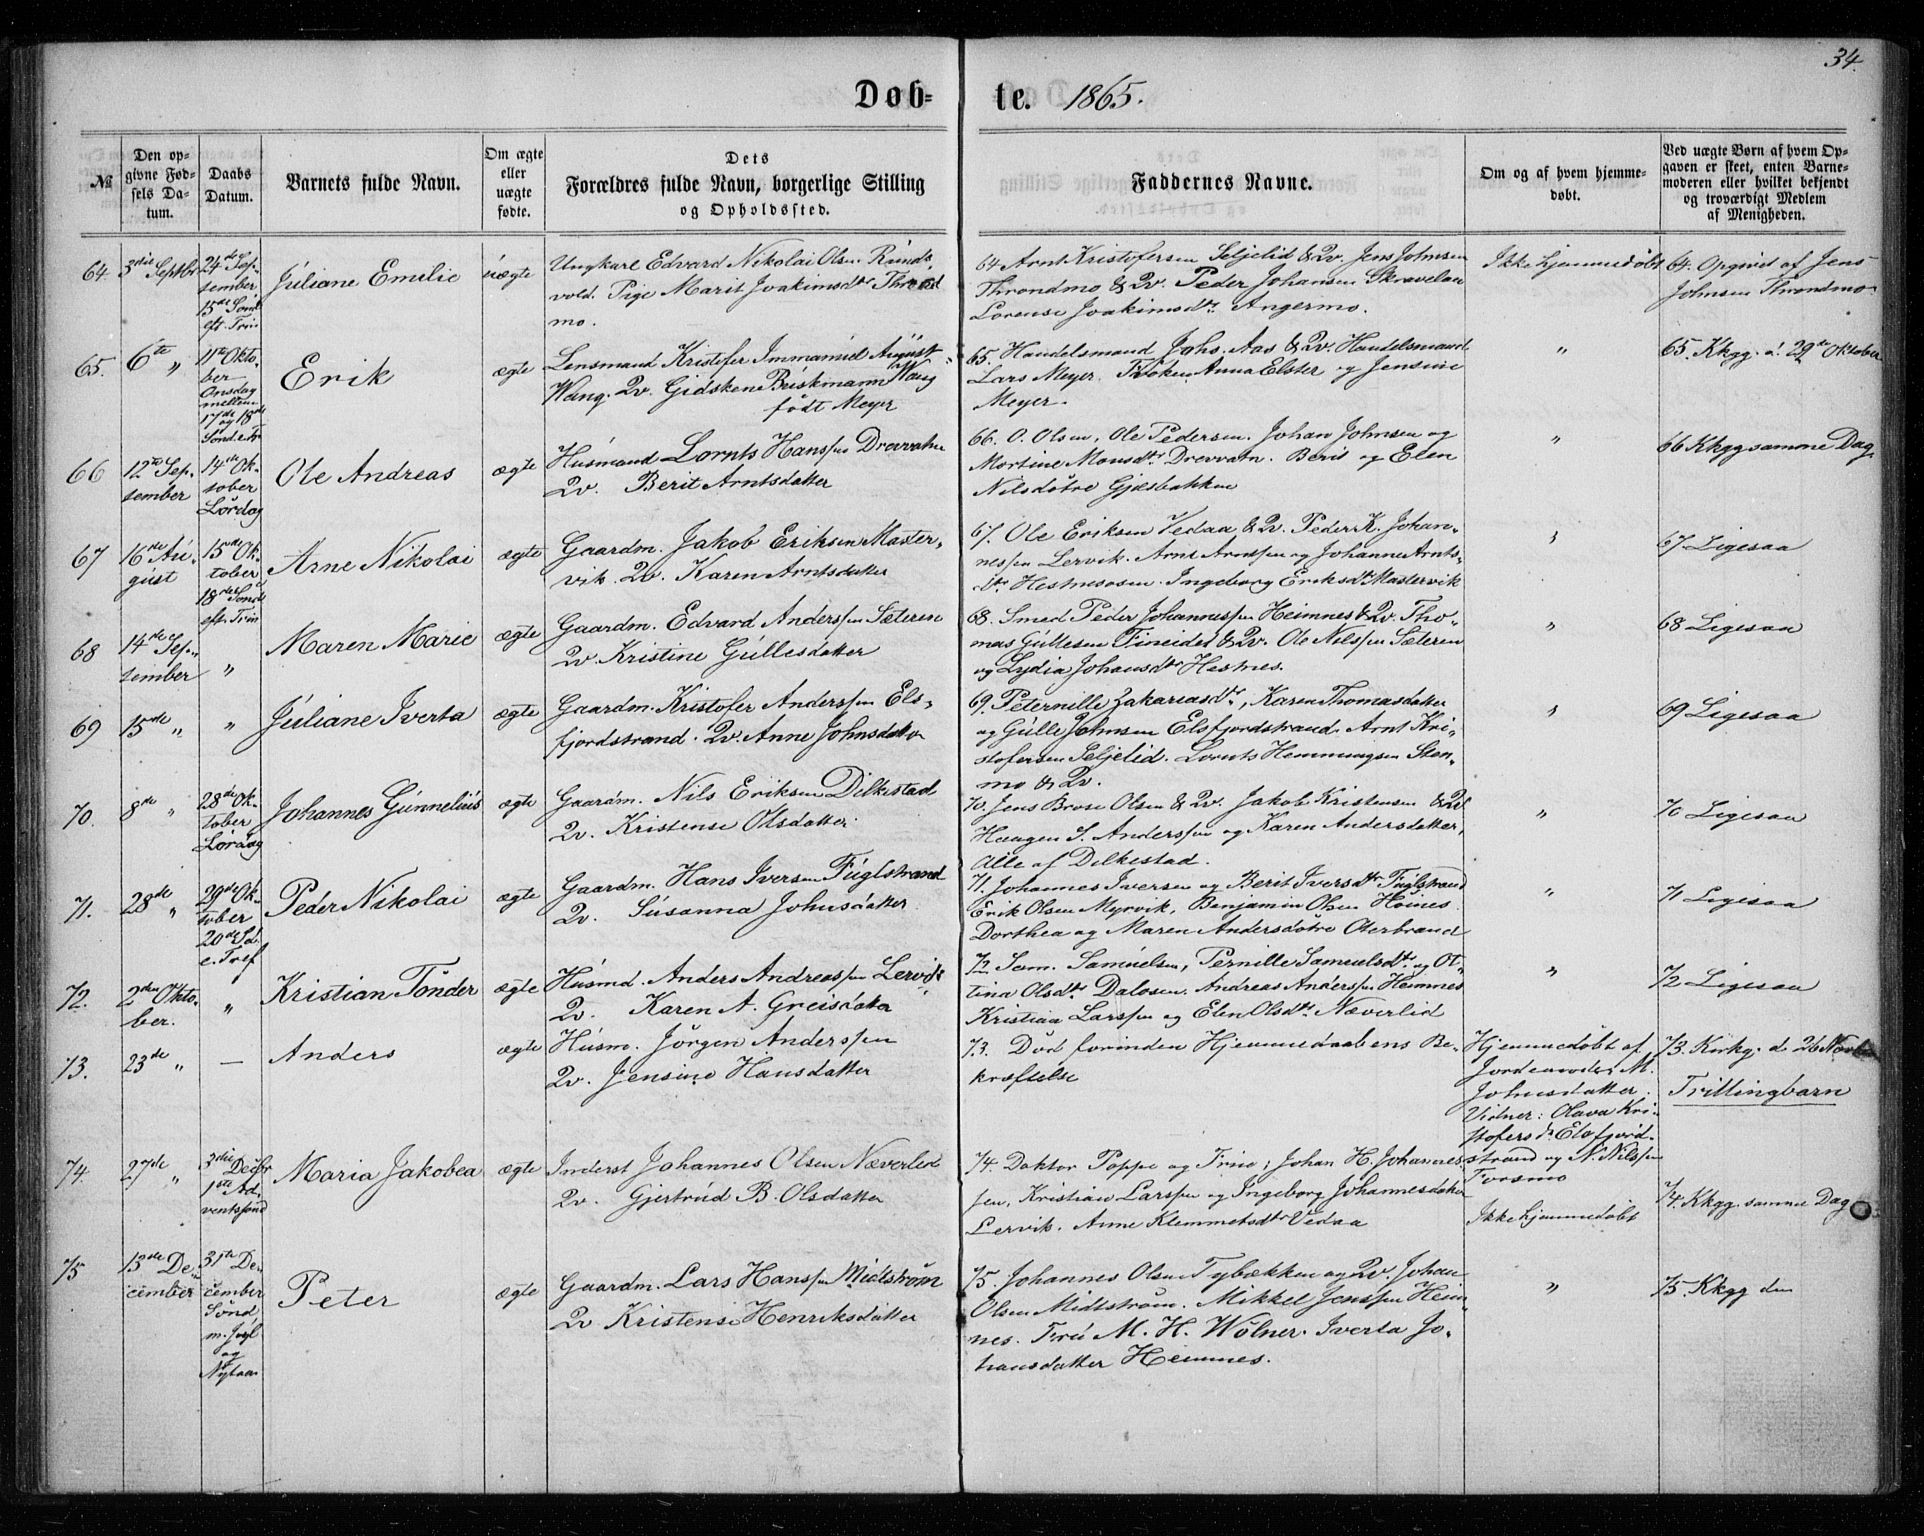 34.
Døb-
te. 1865.
№
Den op-
givne Fød-
sels Da-
tum.
Daabs
Datum.
Barnets fulde Navn.
Om ægte
eller
uægte
fødte.
Dets
Forældres fulde Navn, borgerlige Stilling
og Opholdssted.
Faddernes Navne.
Om og af hvem hjemme-
døbt.
Ved uægte Børn af hvem Op-
gaven er skeet, enten Barne-
moderen eller hvilket bekjendt
og troværdigt Medlem
af Menigheden.
64.
3die Septbr
24de Sep-
tember
15de Sønd
eft. Trin
Juliane Emilie
uægte
Ungkarl Edvard Nikolai Olsen Runds-
vold. Pige Marit Joakimsdtr Thrond
mo.
64 Arnt Kristofersen Seljelid & Qv. Jens Johnsen
Throndmo & Qv. Peder Johansen Skravelan
Lorense Joakimsdtr Angermo.
Ikke hjemmedøbt
64. Opgivet af Jens
Johnsen Throndmo
65.
6te "
11te Okto-
ber
Onsdag
mellem
17de og 18de
Sønd. e. Tr
Erik
ægte
Lensmand Kristofer Immanuel August
Wang. Qv. Gidskene Briskmann Wang
født Meyer
65. Handelsmand Johs. Aas & Qv. Handelsmand
Lars Meyer. Frøken Anna Elster og Jensine
Meyer.
"
65. Kkgg. d. 29de Oktober
66
12te Sep-
tember
14de Ok-
tober
Lørdag
Ole Andreas
ægte
Husmand Lornts Hanssen Drevvatn
Qv. Berit Arntsdatter
66. O. Olsen, Ole Pedersen. Johan Johnsen og
Mortine Monsdtr Drevvatn. Berit og Elen
Nilsdøtre Gjesbakken
"
66 Kkgg samme Dag
67
16de Au-
gust
15de Ok-
tober
18de Sønd
eft. Trin
Arne Nikolai
ægte
Gaardm. Jakob Eriksen Master-
vik. Qv. Karen Arntsdatter
67. Ole Eriksen Vedaa & Qv. Peder K. Johan-
nessen Lervik. Arnt Arntssen og Johanne Arnts-
dtr Hestnesosen. Ingeborg Eriksdtr Mastervik
"
67 Ligesaa
68
14de Sep-
tember
"
Maren Marie
ægte
Gaardm. Edvard Anderssen Sæteren
Qv. Kristine Gullesdatter
68. Smed Peder Johannessen Heimnes & Qv. Tho-
mas Gullesen Tineidet & Qv. Ole Nilssen Sæteren
og Lydia Johansdtr Hestnes.
"
68 Ligesaa
69
15de "
"
Juliane Iverta
ægte
Gaardm. Kristofer Anderssen Els-
fjordstrand. Qv. Anne Johnsdatter
69. Peternille Zakariasdtr, Karen Thomasdatter
og Gulle Johnsen Elsfjordstrand. Arnt Kri-
stofersen Seljelid. Lornts Hemmingsen Sten-
mo & Qv.
"
69 Ligesaa
70.
8de "
28de Ok-
tober
Lørdag
Johannes Gunnelius
ægte
Gaardm. Nils Eriksen Dilkestad
Qv. Kristense Olsdatter
70. Jens Brose Olsen & Qv. Jakob Kristensen & Qv
Haagen S. Anderssen og Karen Andersdatter,
Alle af Dilkestad.
"
70 Ligesaa
71.
28de "
29de Ok-
tober
20de Sd
e. Tref
Peder Nikolai
ægte
Gaardm. Hans Iversen Fuglstrand
Qv. Susanna Johnsdatter
71. Johannes Iversen og Berit Iversdtr Fuglstrand
Erik Olsen Myrvik, Benjamin Olsen Høines
Dorthea og Maren Andersdøtre Oterbrand
"
71 Ligesaa
72.
2den Okto-
ber.
"
Kristian Tønder
ægte
Husmd. Anders Andreassen Lervik
Qv. Karen A. Greisdatter
72. Sam. Samuelsen, Pernille Samuelsdtr og Ot-
tina Olsdtr Dalosen. Andreas Anderssen Heimnes
Kristian Larssen og Elen Olsdtr Næverlid
"
72 Ligesaa
73.
23de "
—
Anders
ægte
Husm. Jørgen Anderssen
Qv. Jensine Hansdatter
73. Død forinden Hjemmedaabens Be-
kræftelse
Hjemmedøbt af
Jordemoder M.
Johnsdatter.
Vidner: Olava Kri-
stofersdtr Elsfjord-
strand og N. Nilssen
Forsmo
73. Kirkg. d 26 Novbr
Trillingbarn
74.
27de "
3die Decbr
1ste Ad-
ventsønd
Maria Jakobea
ægte
Inderst Johannes Olsen Næverlid
Qv. Gjertrud B. Olsdatter
74. Doktor Poppe og Frue, Johan H. Johannes-
sen, Kristian Larssen og Ingeborg Johannesdatter
Lervik. Anne Klemmetsdtr Vedaa
Ikke hjemmedøbt
74. Kkgg. samme Dag
75
13de De-
cember
31te De-
cember
Sønd
m. Jul
og
Nytaar
Peter
ægte
Gaardm. Lars Hanssen Midtstrøm
Qv Kristense Henriksdatter
75. Johannes Olsen Tybækken og Qv. Johan
Olsen Midtstrøm. Mikkel Jenssen Heim-
nes. Fru M. H. Wølner. Iverta Jo-
hansdatter Heimnes.
"
75. Kkgg den